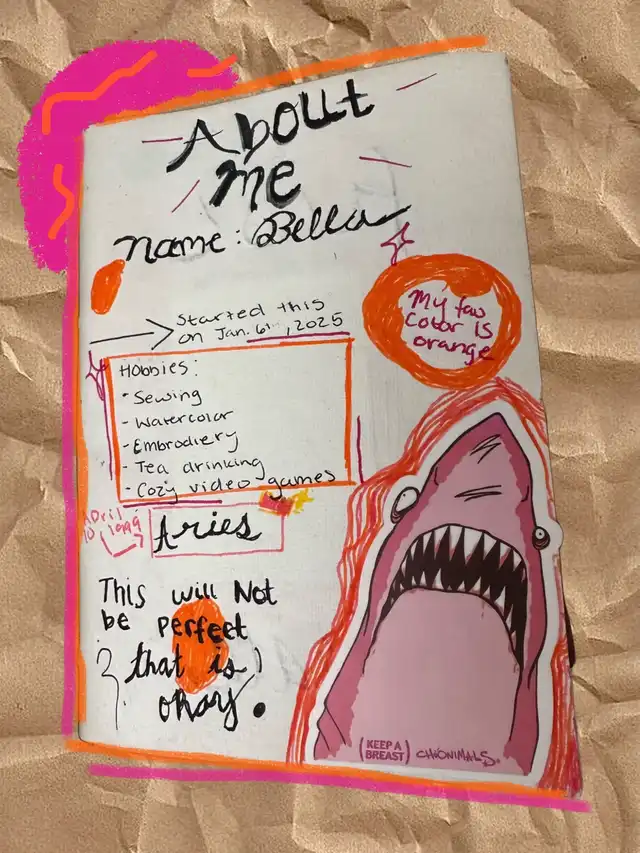 About
Me
Name: Bella
Started this
on Jan. 6th, 2025
My fav
color is
orange
Hobbies:
- Sewing
- Watercolor
- Embrodiery
- Tea drinking
- Cozy video games
April
10 1999
Aries
This will Not
be perfect
& that is
okay.
(KEEP A
BREAST)
CHONIMALS.